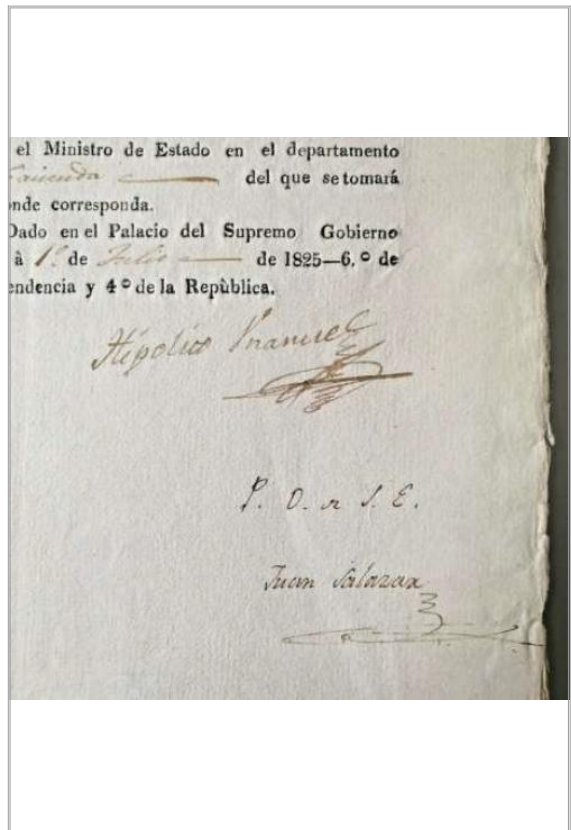 el Ministro de Estado en el departamento
Hacienda del que se tomará
onde corresponda.
Dado en el Palacio del Supremo Gobierno
à 1º de Julio de 1825—6.º de
endencia y 4º de la Repùblica.
Hipolito Unanue
P. O. de S. E.
Juan Salazar